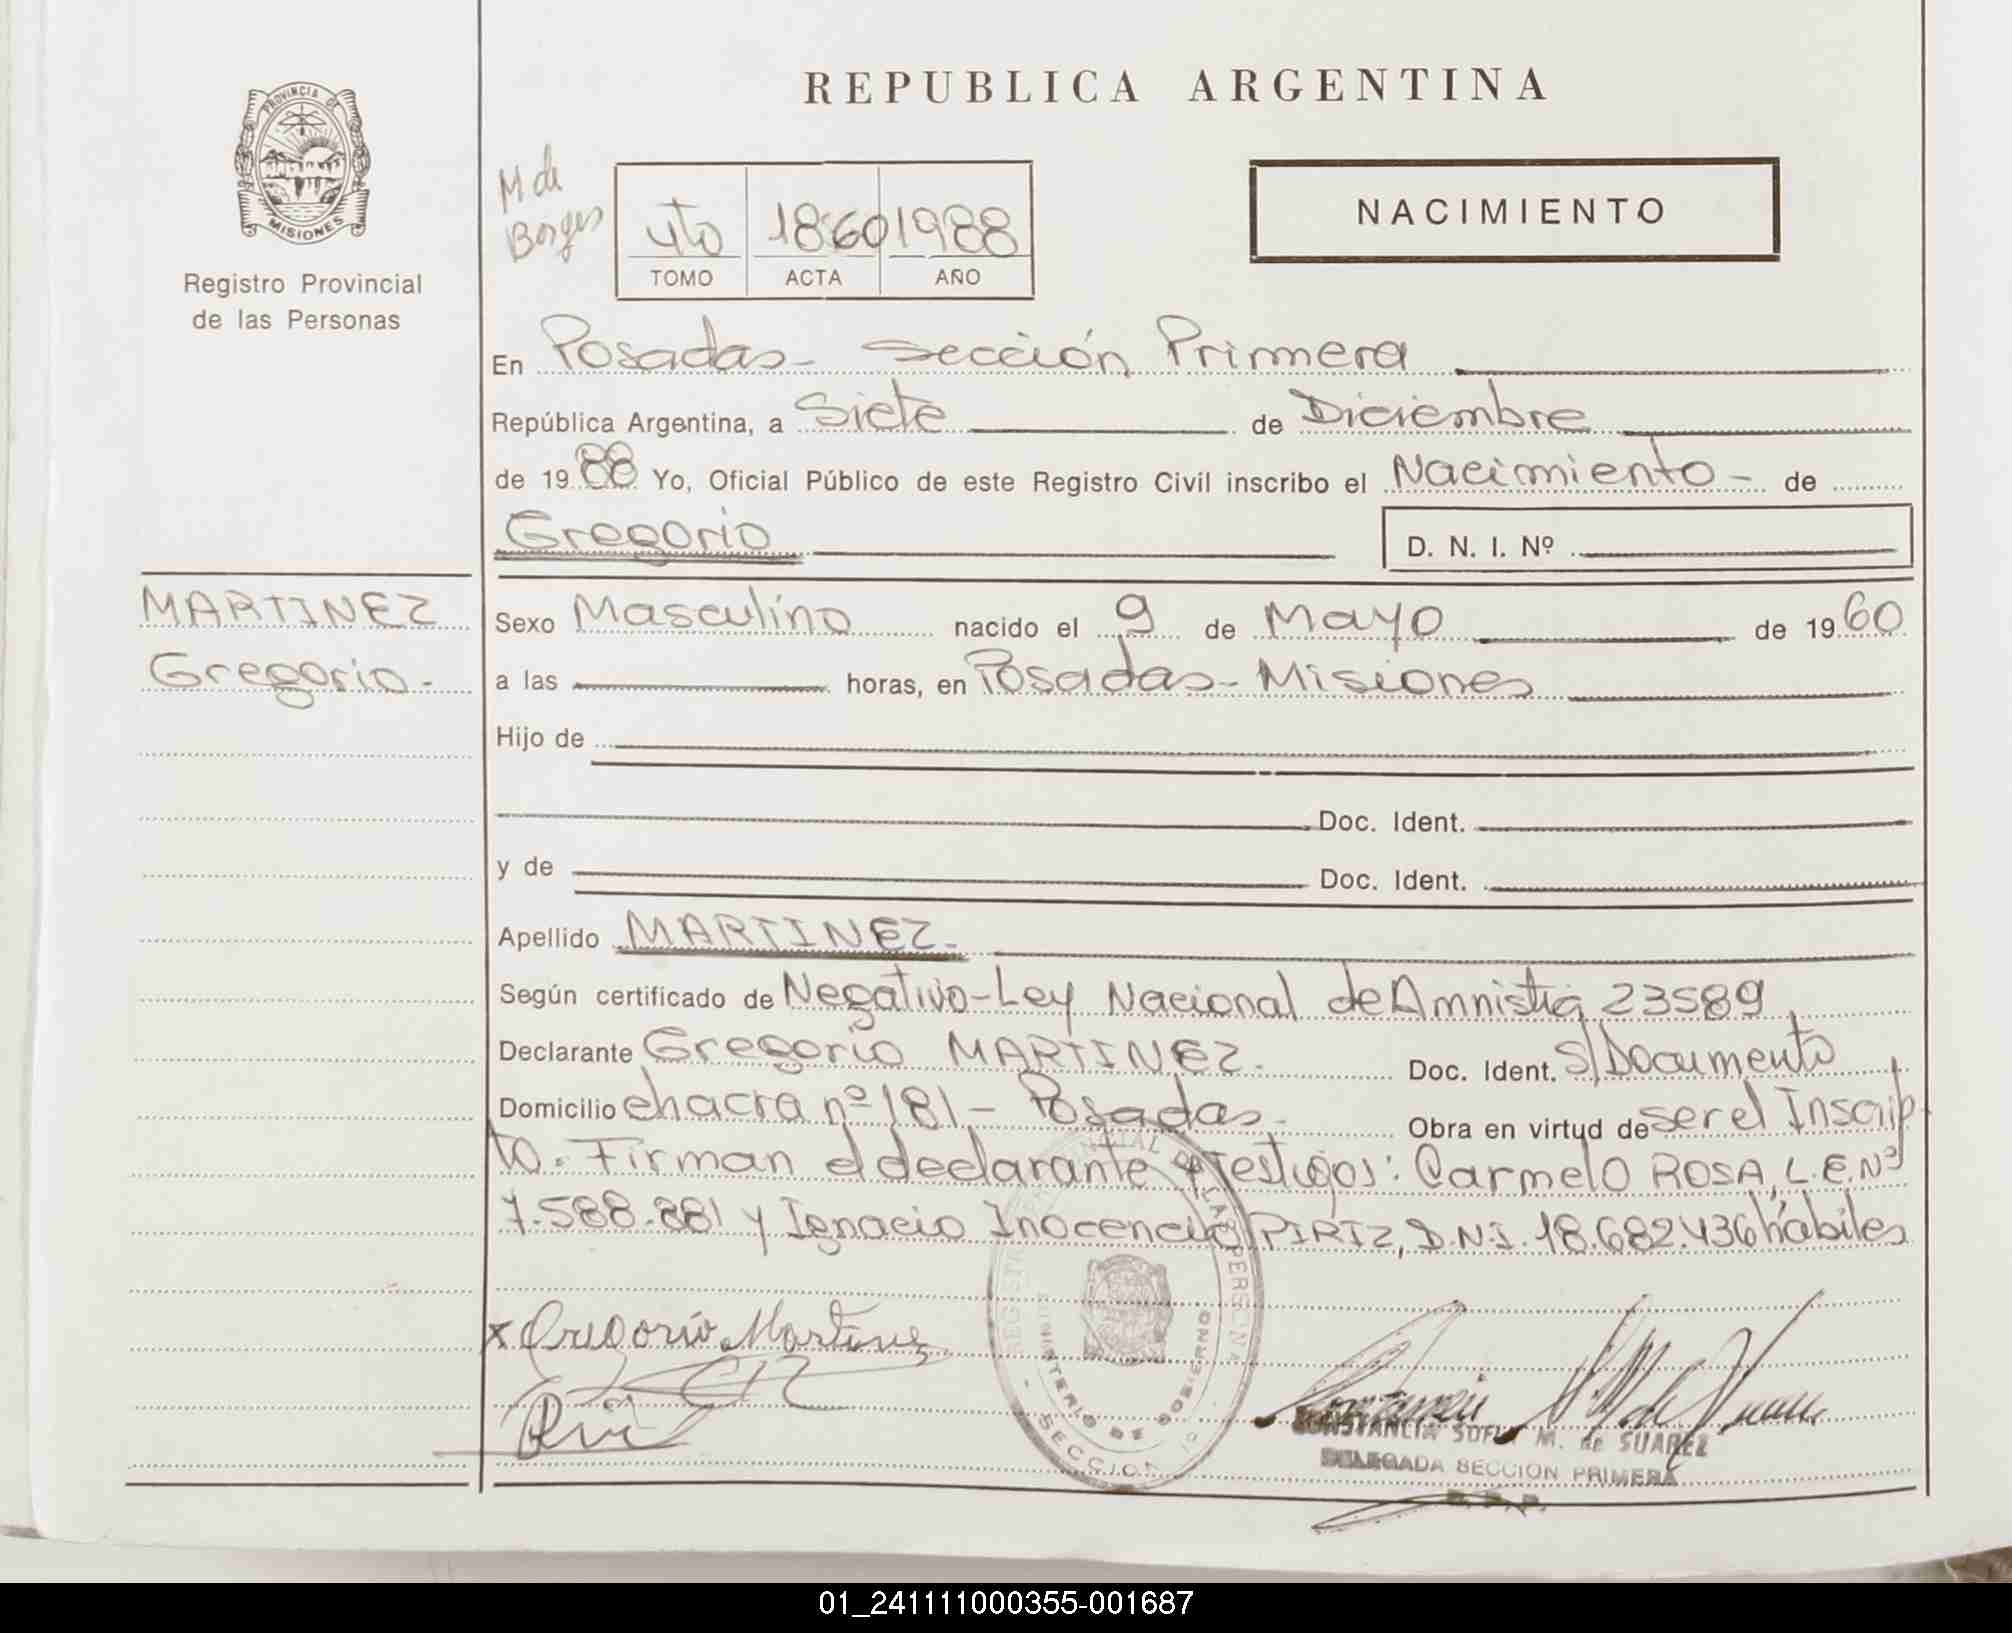 REPUBLICA ARGENTINA
PROVINCIA DE
MISIONES
Registro Provincial
de las Personas
M de
Borges
4to 1860 1988
TOMO ACTA AÑO
NACIMIENTO
En Posadas- Sección Primera
República Argentina, a Siete de Diciembre
de 1988 Yo, Oficial Público de este Registro Civil inscribo el Nacimiento - de
Gregorio D. N. I. Nº
MARTINEZ
Gregorio.-
Sexo Masculino nacido el 9 de Mayo de 1960
a las horas, en Posadas- Misiones
Hijo de
Doc. Ident.
y de Doc. Ident.
Apellido MARTINEZ.-
Según certificado de Negativo-Ley Nacional de Amnistia 23589
Declarante Gregorio MARTINEZ. Doc. Ident. S/Documento
Domicilio chacra nº 181 - Posadas.- Obra en virtud de ser el Inscrip
to. Firman el declarante y testigos: Carmelo ROSA, L.E.Nº
7.588.881 y Ignacio Inocencio PIRIZ, D.N.I. 18.682.436 hábiles
x Gregorio Martinez
MINISTERIO DE GOBIERNO
SECCION 1º
CONSTANCIA SOFIA M. de SUAREZ
DELEGADA SECCION PRIMERA
R. P. P.
01_241111000355-001687